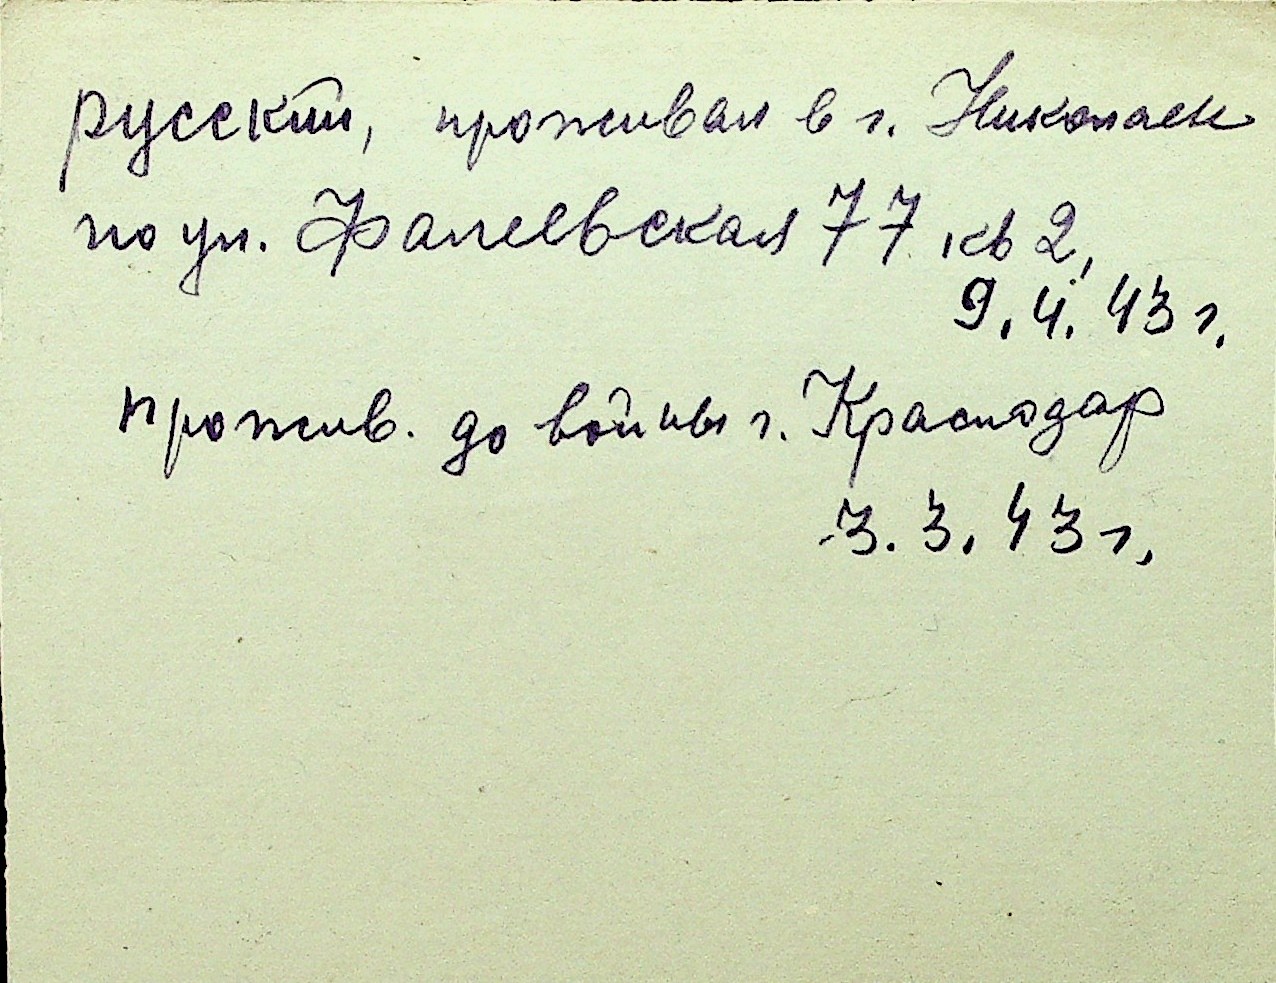 русский, проживал в г. Николаев
по ул. Фалеевская 77 кв 2,
9.4.43 г.
прожив. до войны г. Краснодар
3.3.43 г.